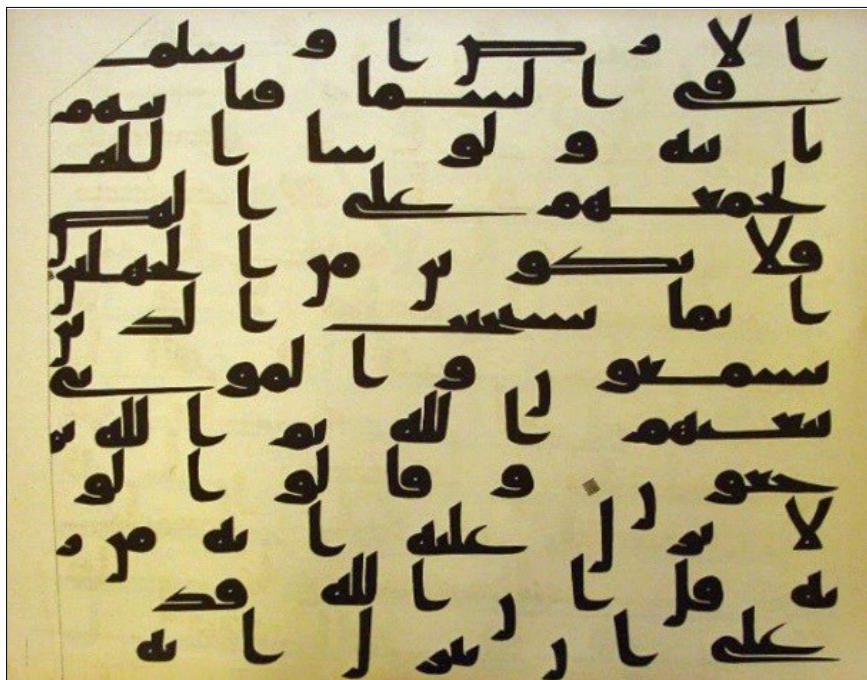 الارض او سلما
في السما فتاتيهم
بايه ولو شا الله
لجمعهم على الهدى
فلا تكونن من الجهلين
انما يستجيب الذين
يسمعون والموتى
يبعثهم الله ثم اليه ير
جعون وقالوا لو
لا نزل عليه ايه من ر
به قل ان الله قد
على ان ينزل ايه